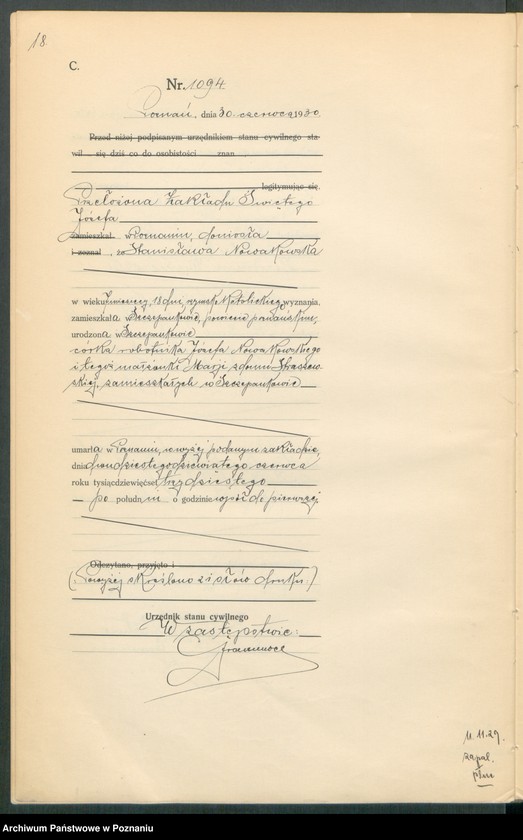 18
C.
Nr. 1094
Poznań, dnia 30. czerwca 1930
Przed niżej podpisanym urzędnikiem stanu cywilnego sta-
wił się dziś co do osobistości znan
legitymując się
Przełożona Zakładu Świętego
Józefa
zamieszkał. w Poznaniu, doniosła
i zeznał , że Stanisława Nowakowska
w wieku 18 dni, rzymsko katolickiego wyznania,
zamieszkała w Szczepankowie, powiecie poznańskim,
urodzona w Szczepankowie
córka robotnika Józefa Nowakowskiego
i tegoż małżonki Marji z domu Straszew-
skiej, zamieszkałych w Szczepankowie
umarła w Poznaniu, w wyżej podanym zakładzie,
dnia dwudziestego dziewiątego czerwca
roku tysiącdziewięćset trzydziestego
po połudn iu o godzinie wpół do pierwszej.
Odczytano, przyjęto i
(Powyżej skreślono 21 słów druku.)
Urzędnik stanu cywilnego
W zastępstwie:
U. 11.29.
zapal.
płuc
Archiwum Państwowe w Poznaniu